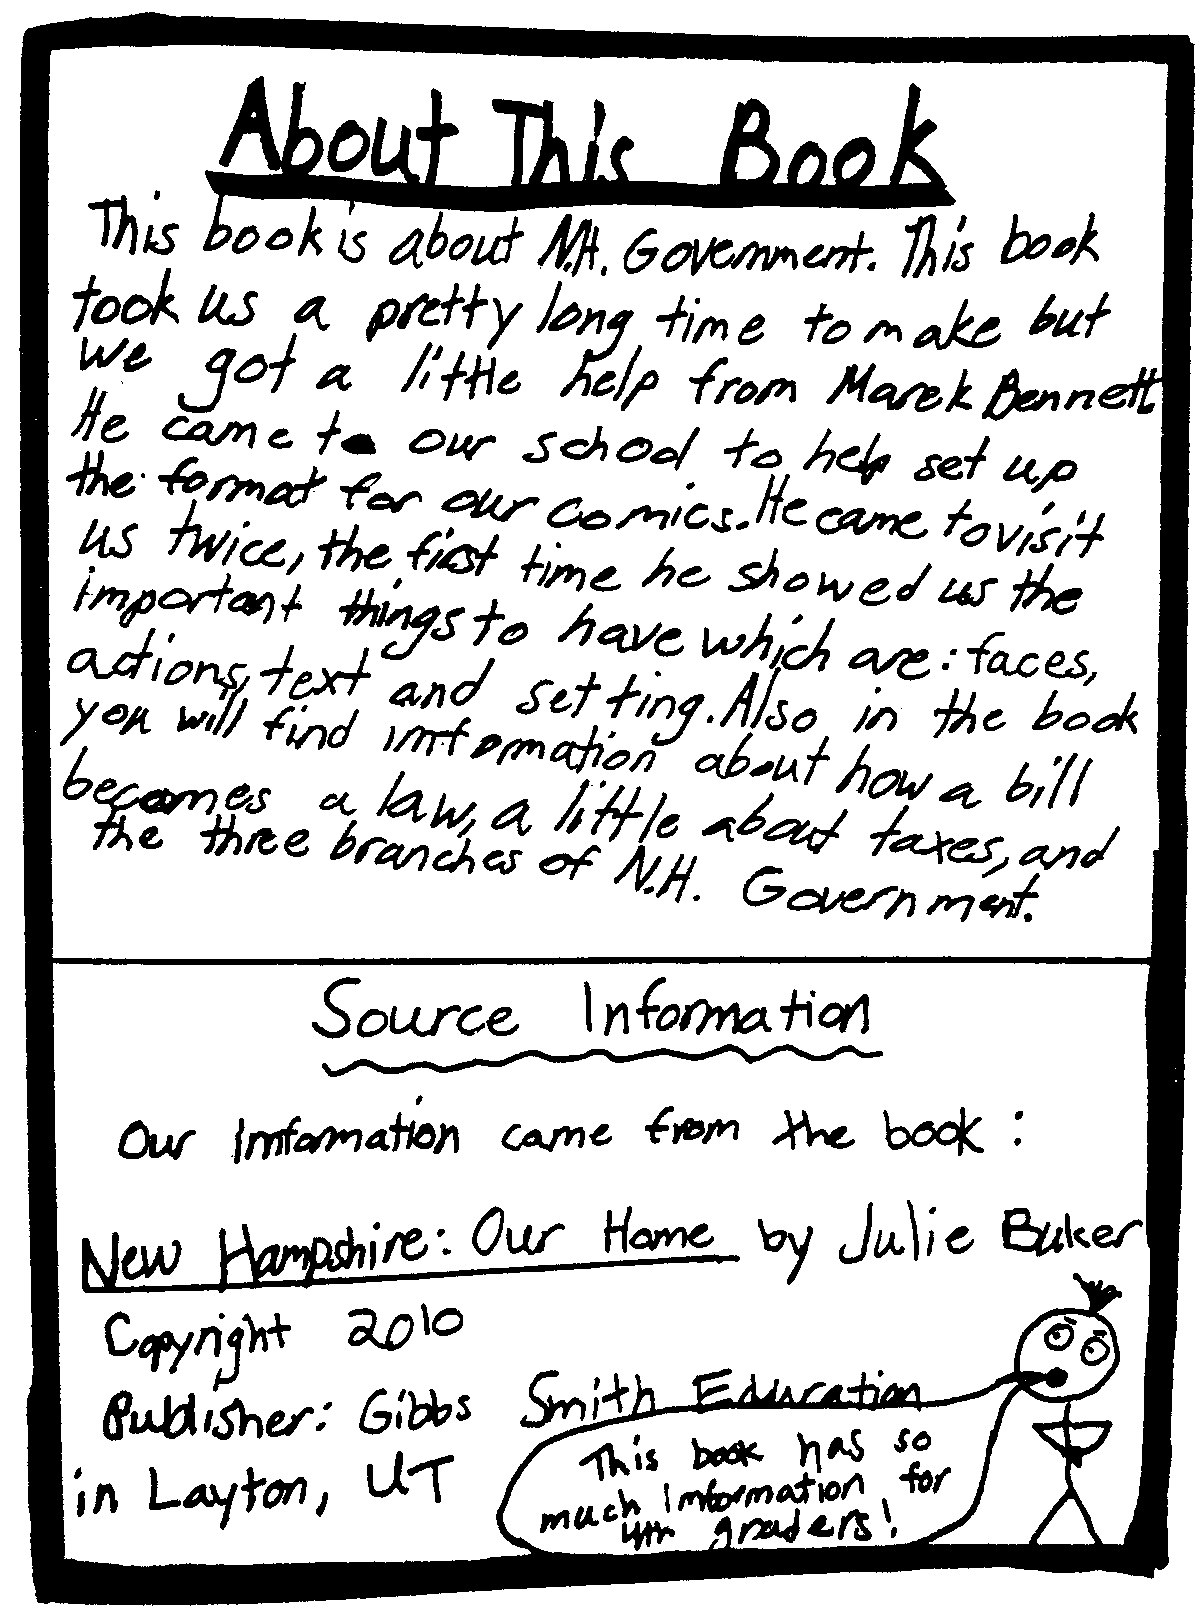 About This Book
This book is about N.H. Government. This book
took us a pretty long time to make but
we got a little help from Marek Bennett
He came to our school to help set up
the format for our comics. He came to visit
us twice, the first time he showed us the
important things to have which are: faces,
actions, text and setting. Also in the book
you will find imformation about how a bill
becomes a law, a little about taxes, and
the three branches of N.H. Government.
Source Information
Our Imformation came from the book:
New Hampshire: Our Home by Julie Buker
Copyright 2010
Publisher: Gibbs Smith Education
in Layton, UT
This book has so
much Imformation for
4th graders!